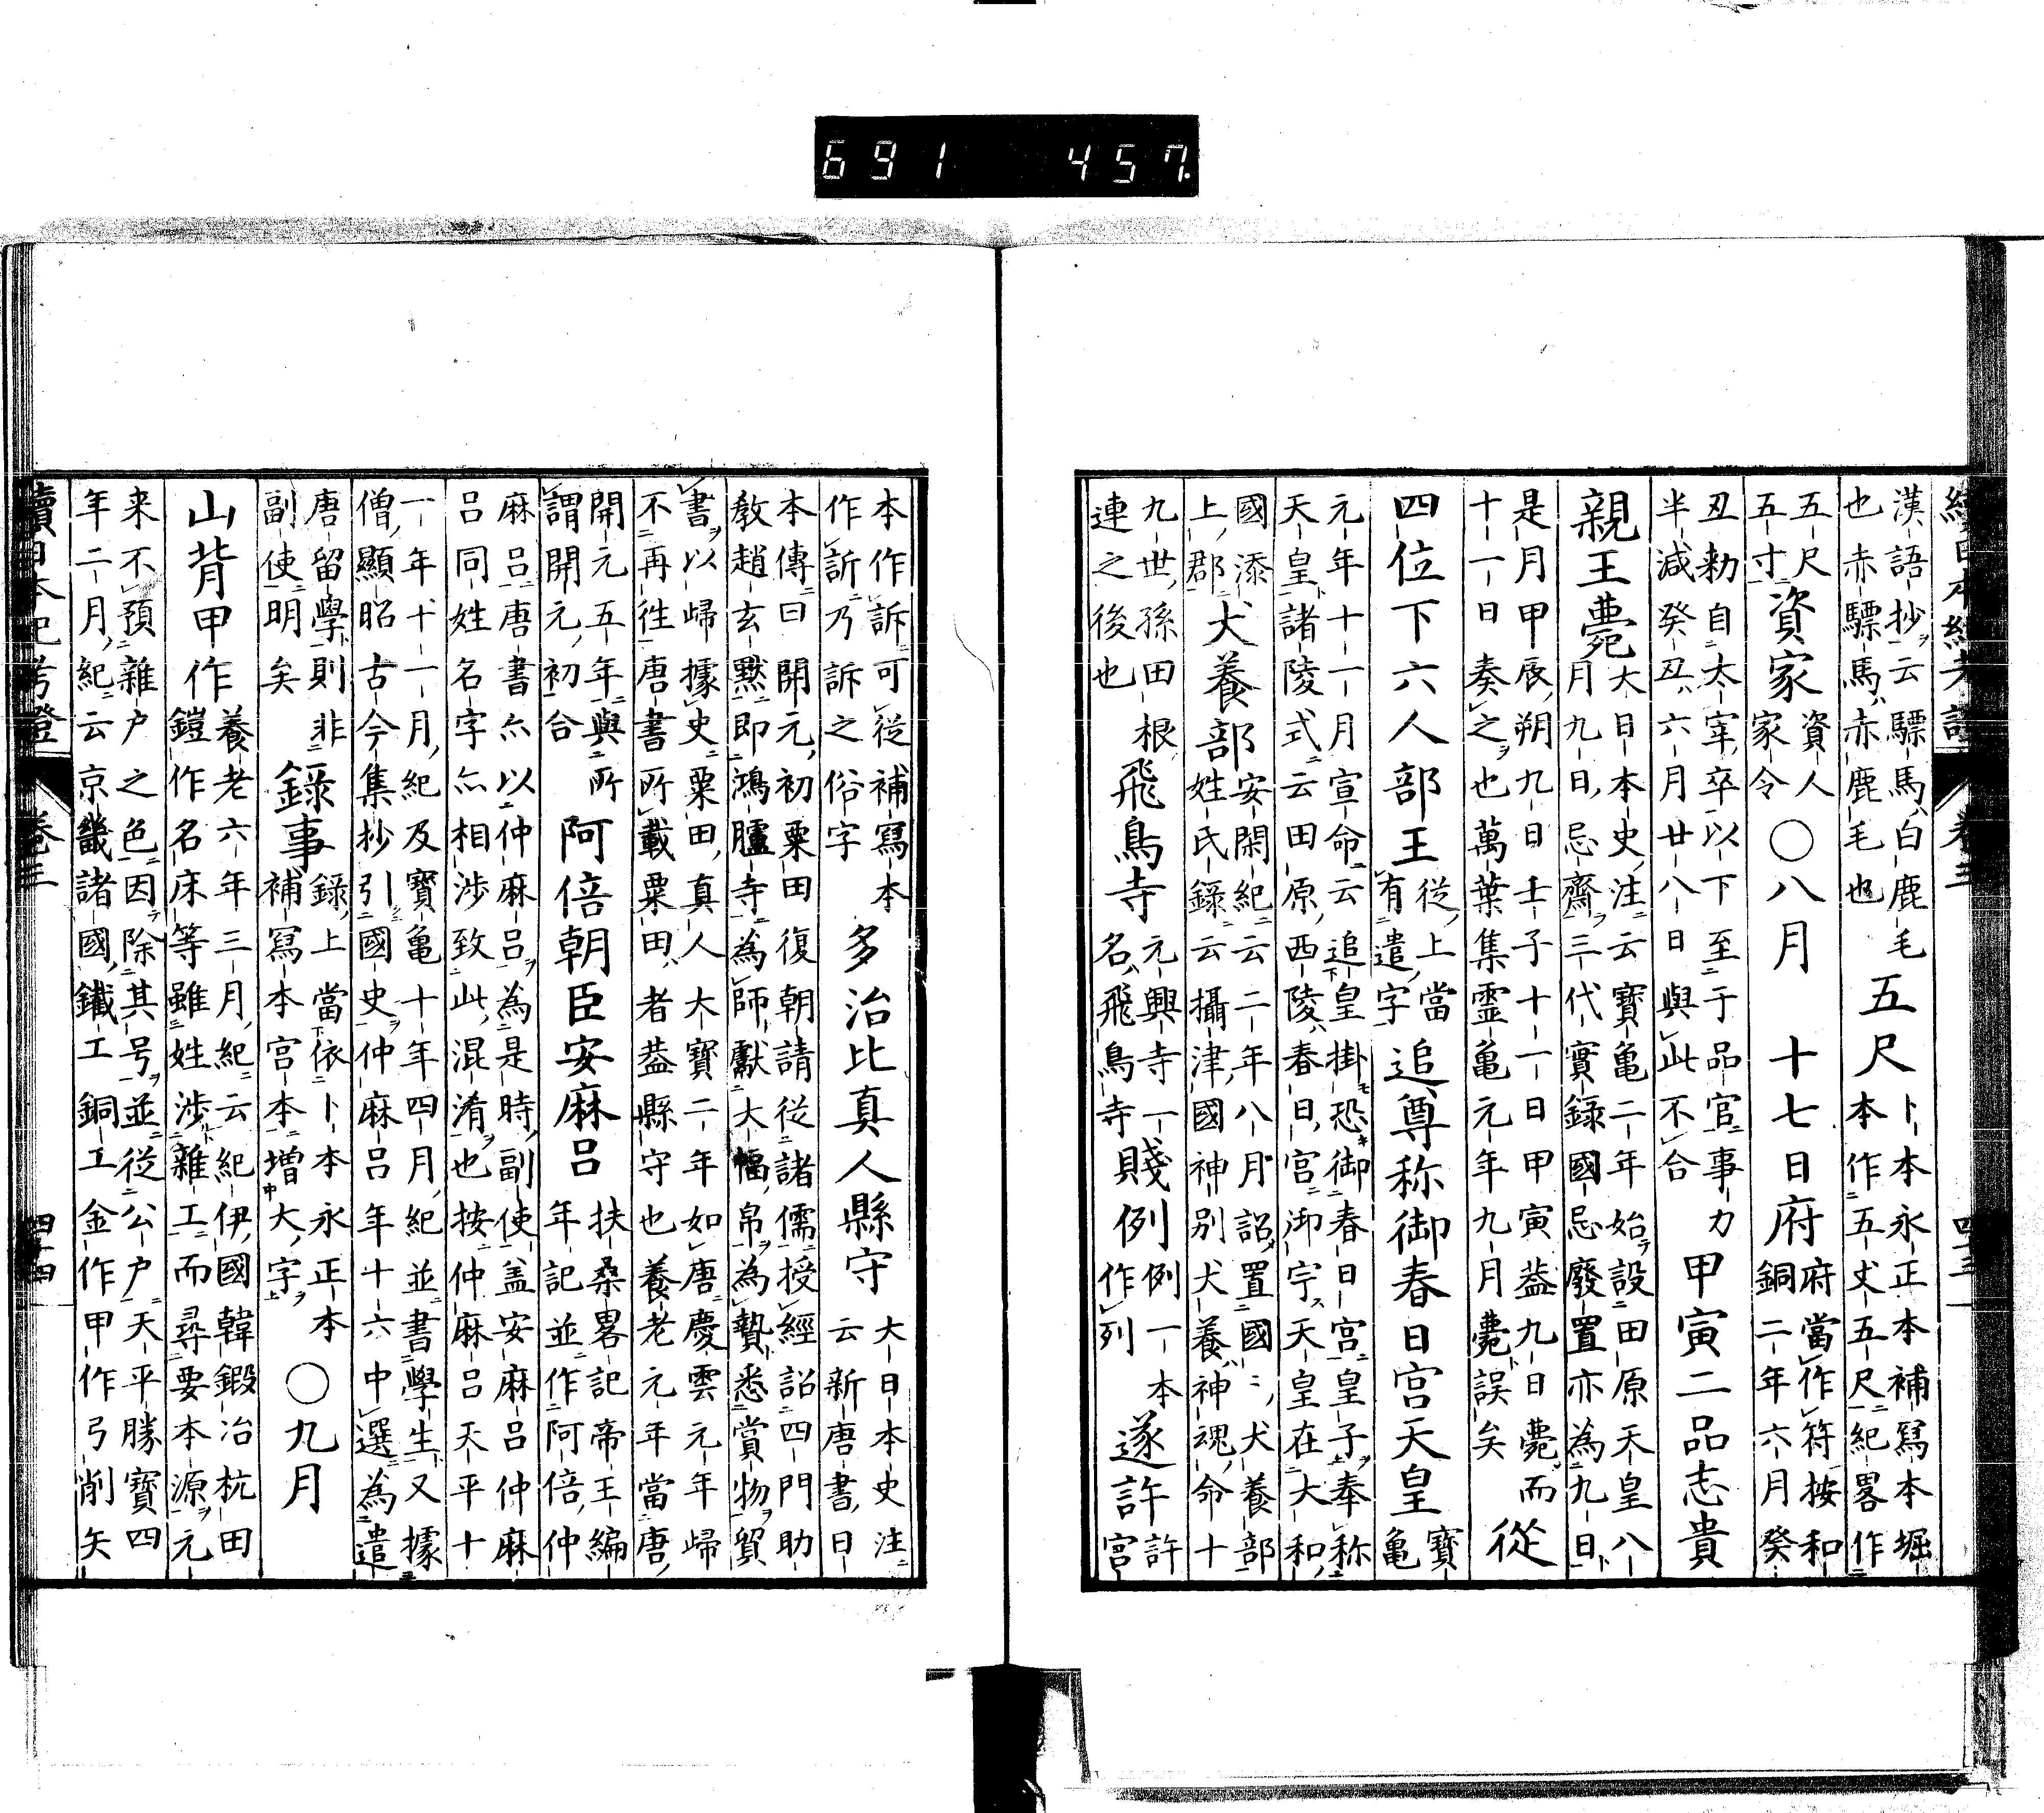 691 457.
續日本紀考證 卷三 四十三
漢語抄云驃馬白鹿毛
也赤驃馬赤鹿毛也
五尺
卜本永正本補寫本堀
本作五丈五尺紀畧作
五尺
五寸
資家
資人
家令
〇八月 十七日府
府當作符按和
銅二年六月癸
丑勅自太宰卒以下至于品官事力
半減癸丑六月廿八日與此不合
甲寅二品志貴
親王薨
大日本史注云寶亀二年始設田原天皇八
月九日忌齋三代實録國忌廢置亦為九日
是月甲辰朔九日壬子十一日甲寅葢九日薨而
十一日奏之也萬葉集霊亀元年九月薨誤矣
從
四位下六人部王
從上當
有遣字
追尊称御春日宮天皇
寶
亀
元年十一月宣命云追皇掛恐御春日宮皇子奉称
天皇諸陵式云田原西陵春日宮御宇天皇在大和
國添
上郡
犬養部
安閑紀云二年八月詔置國〻犬養部
姓氏録云攝津國神別犬養神魂命十
九世孫田根
連之後也
飛鳥寺
元興寺一
名飛鳥寺
賎例
例一本
作列
遂許
許
宮
本作訴可從補寫本
作訢乃訴之俗字
多治比真人縣守
大日本史注
云新唐書日
本傳曰開元初粟田復朝請從諸儒授經詔四門助
教趙玄默即鴻臚寺為師獻大幅帛為贄悉賞物貿
書以歸據史粟田真人大寶二年如唐慶雲元年歸
不再往唐書所載粟田者葢縣守也養老元年當唐
開元五年與所
謂開元初合
阿倍朝臣安麻呂
扶桑畧記帝王編
年記並作阿倍仲
麻呂唐書亦以仲麻呂為是時副使盖安麻呂仲麻
呂同姓名字亦相渉致此混淆也按仲麻呂天平十
一年十一月紀及寶亀十年四月紀並書學生又據
僧顯昭古今集抄引國史仲麻呂年十六中選為遣
唐留學則非
副使明矣
録事
録上當依卜本永正本
補寫本宮本増大字
〇九月
山背甲作
養老六年三月紀云紀伊國韓鍛冶杭田
鎧作名床等雖姓渉雜工而尋要本源元
来不預雜户之色因除其号並從公户天平勝寶四
年二月紀云京畿諸國鐵工銅工金作甲作弓削矢
續日本紀考證 卷三 四十四